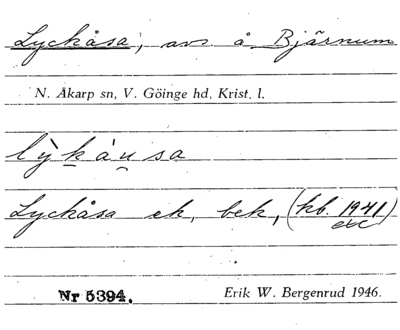 Lyckåsa, avs å Bjärnum
N. Åkarp sn, V. Göinge hd, Krist. l.
lỳkàu̠sa
Lyckåsa ek, bek, (kb. 1941)
etc
Nr 5394.
Erik W. Bergenrud 1946.